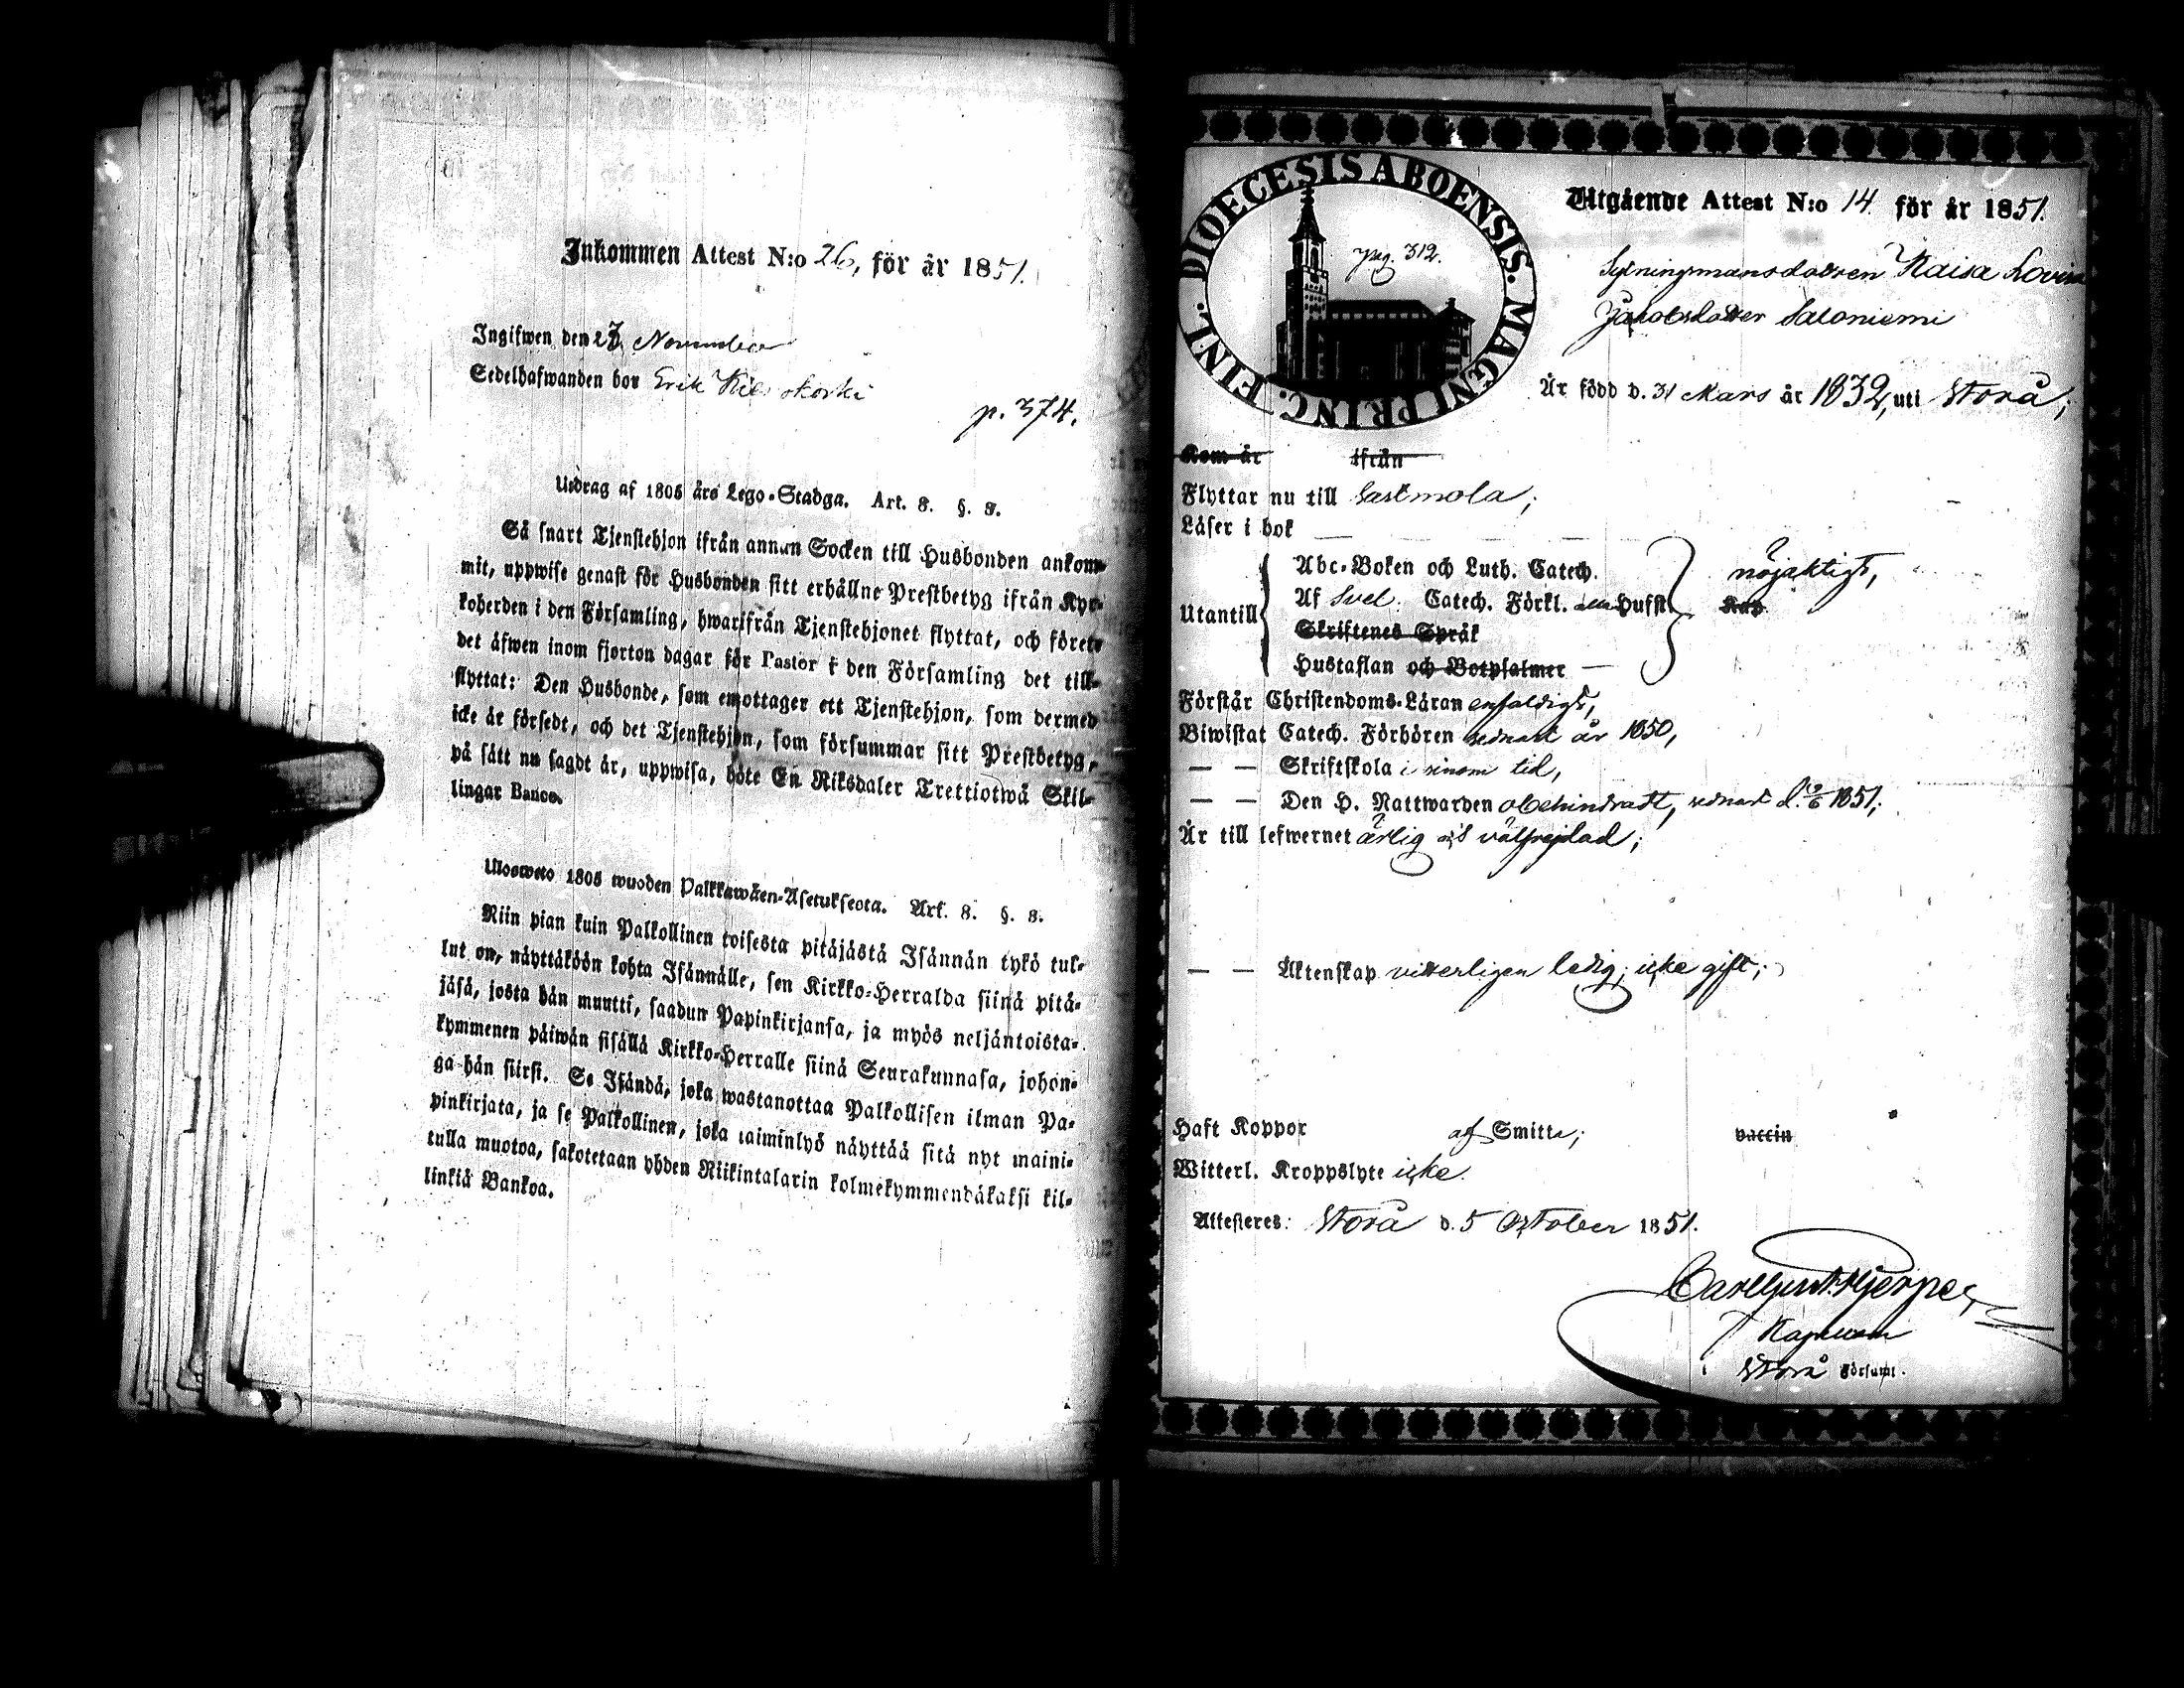 Inkommen Attest N:o 26, för år 1851.
Ingifwen den 27 November
Sedelhafwanden bor Erik
p. 374.
Utdrag af 1805 års Lego-Stadga. Art. 8. §. 8.
Så snart Tjenstehjon ifrån annan Socken till Husbonden ankom-
mit, uppwise genast för Husbonden sitt erhållne Prestbetyg ifrån Kyr-
koherden i den Församling, hwarifrån Tjenstehjonet flyttat, och förete
det äfwen inom fjorton dagar för Pastor i den Församling det till-
flyttat: Den Husbonde, som emottager ett Tjenstehjon, som dermed
icke är försedt, och det Tjenstehjon, som försummar sitt Prestbetyg,
på sätt nu sagdt är, uppwisa, böte En Riksdaler Trettiotwå Skil-
lingar Banco.
Ulosweto 1805 wuoden Palkkawäen-Asetuksesta. Art. 8. §. 8.
Niin pian kuin Palkollinen toisesta pitäjästä Isännän tykö tul-
lut on, näyttäköön kohta Isännälle, sen Kirkko-Herralda siinä pitä-
jäsä, josta hän muutti, saadun Papinkirjansa, ja myös neljäntoista-
kymmenen päiwän sisällä Kirkko-Herralle siinä Seurakunnasa, johon-
ga hän siirsi. Se Isändä, joka wastanottaa Palkollisen ilman Pa-
pinkirjata, ja se Palkollinen, joka laiminlyö näyttää sitä nyt maini-
tulla muotoa, sakotetaan yhden Riikintalarin kolmekymmendäkaksi kil-
linkiä Bankoa.
DIOECESIS ABOENSIS. MAGNI PRINC. FINL.
pag. 312.
Utgående Attest N:o 14 för år 1851.
Sytningsmansdottren Kaisa Lovisa
Jakobsdotter Saloniemi
Är född d. 31 Mars år 1832, uti Storå;
Kom år ifrån
Flyttar nu till Sastmola;
Läser i bok
Utantill
Abc-Boken och Luth. Catech.
Af Svel. Catech. Förkl. Hufst
Skriftenes Språk
Hustaflan och Botpsalmer
nöjaktigt,
Förstår Christendoms-Läran enfaldigt,
Biwistat Catech. Förhören sednast år 1850,
— — Skriftskola i sinom tid,
— — Den H. Nattwarden obehindradt, sednast d. 9/6 1851;
Är till lefwernet ärlig och välfrejdad;
— — Äktenskap vitterligen ledig; icke gift;
Haft Koppor af Smitta; vaccin
Witterl. Kroppslyte icke.
Attesteres: Storå d. 5 October 1851.
Carl Gust. Hjerpe
Kapellan
i Storå Församl.